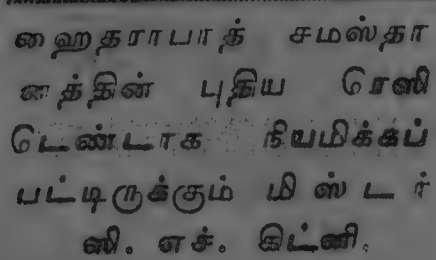 ஹைதராபாத் சமஸ்தா
னத்தின் புதிய ரெஸி
டெண்டாக நியமிக்கப்
பட்டிருக்கும் மிஸ்டர்
ஸி. எச். கிட்னி.